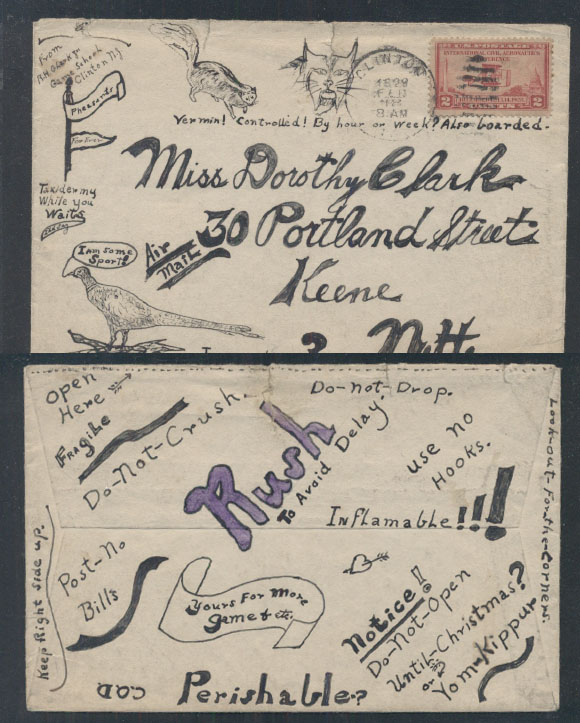 From
R.H. Clark Jr
Game School
Clinton NJ
Pheasants
For Ever
Taxidermy
While you
Waits
I am some
Sport!
CLINTON
1929
FEB
8 AM
U.S. POSTAGE
INTERNATIONAL CIVIL AERONAUTICS
CONFERENCE
2 2
Vermin! Controlled! By hour or week? Also boarded.
Miss Dorothy Clark
30 Portland Street
Air
Mail
Keene
Open
Here
Fragile
Do-Not-Crush.
Do-not-Drop.
Rush
To Avoid Delay.
use no
Hooks.
Inflamable!!!!
Look-out-For-the-Corners.
Keep Right side up.
Post-No
Bills
Yours For More
Game & etc.
Notice!
Do-Not-Open
Until-Christmas?
or
Yom-Kippur
COD
Perishable?